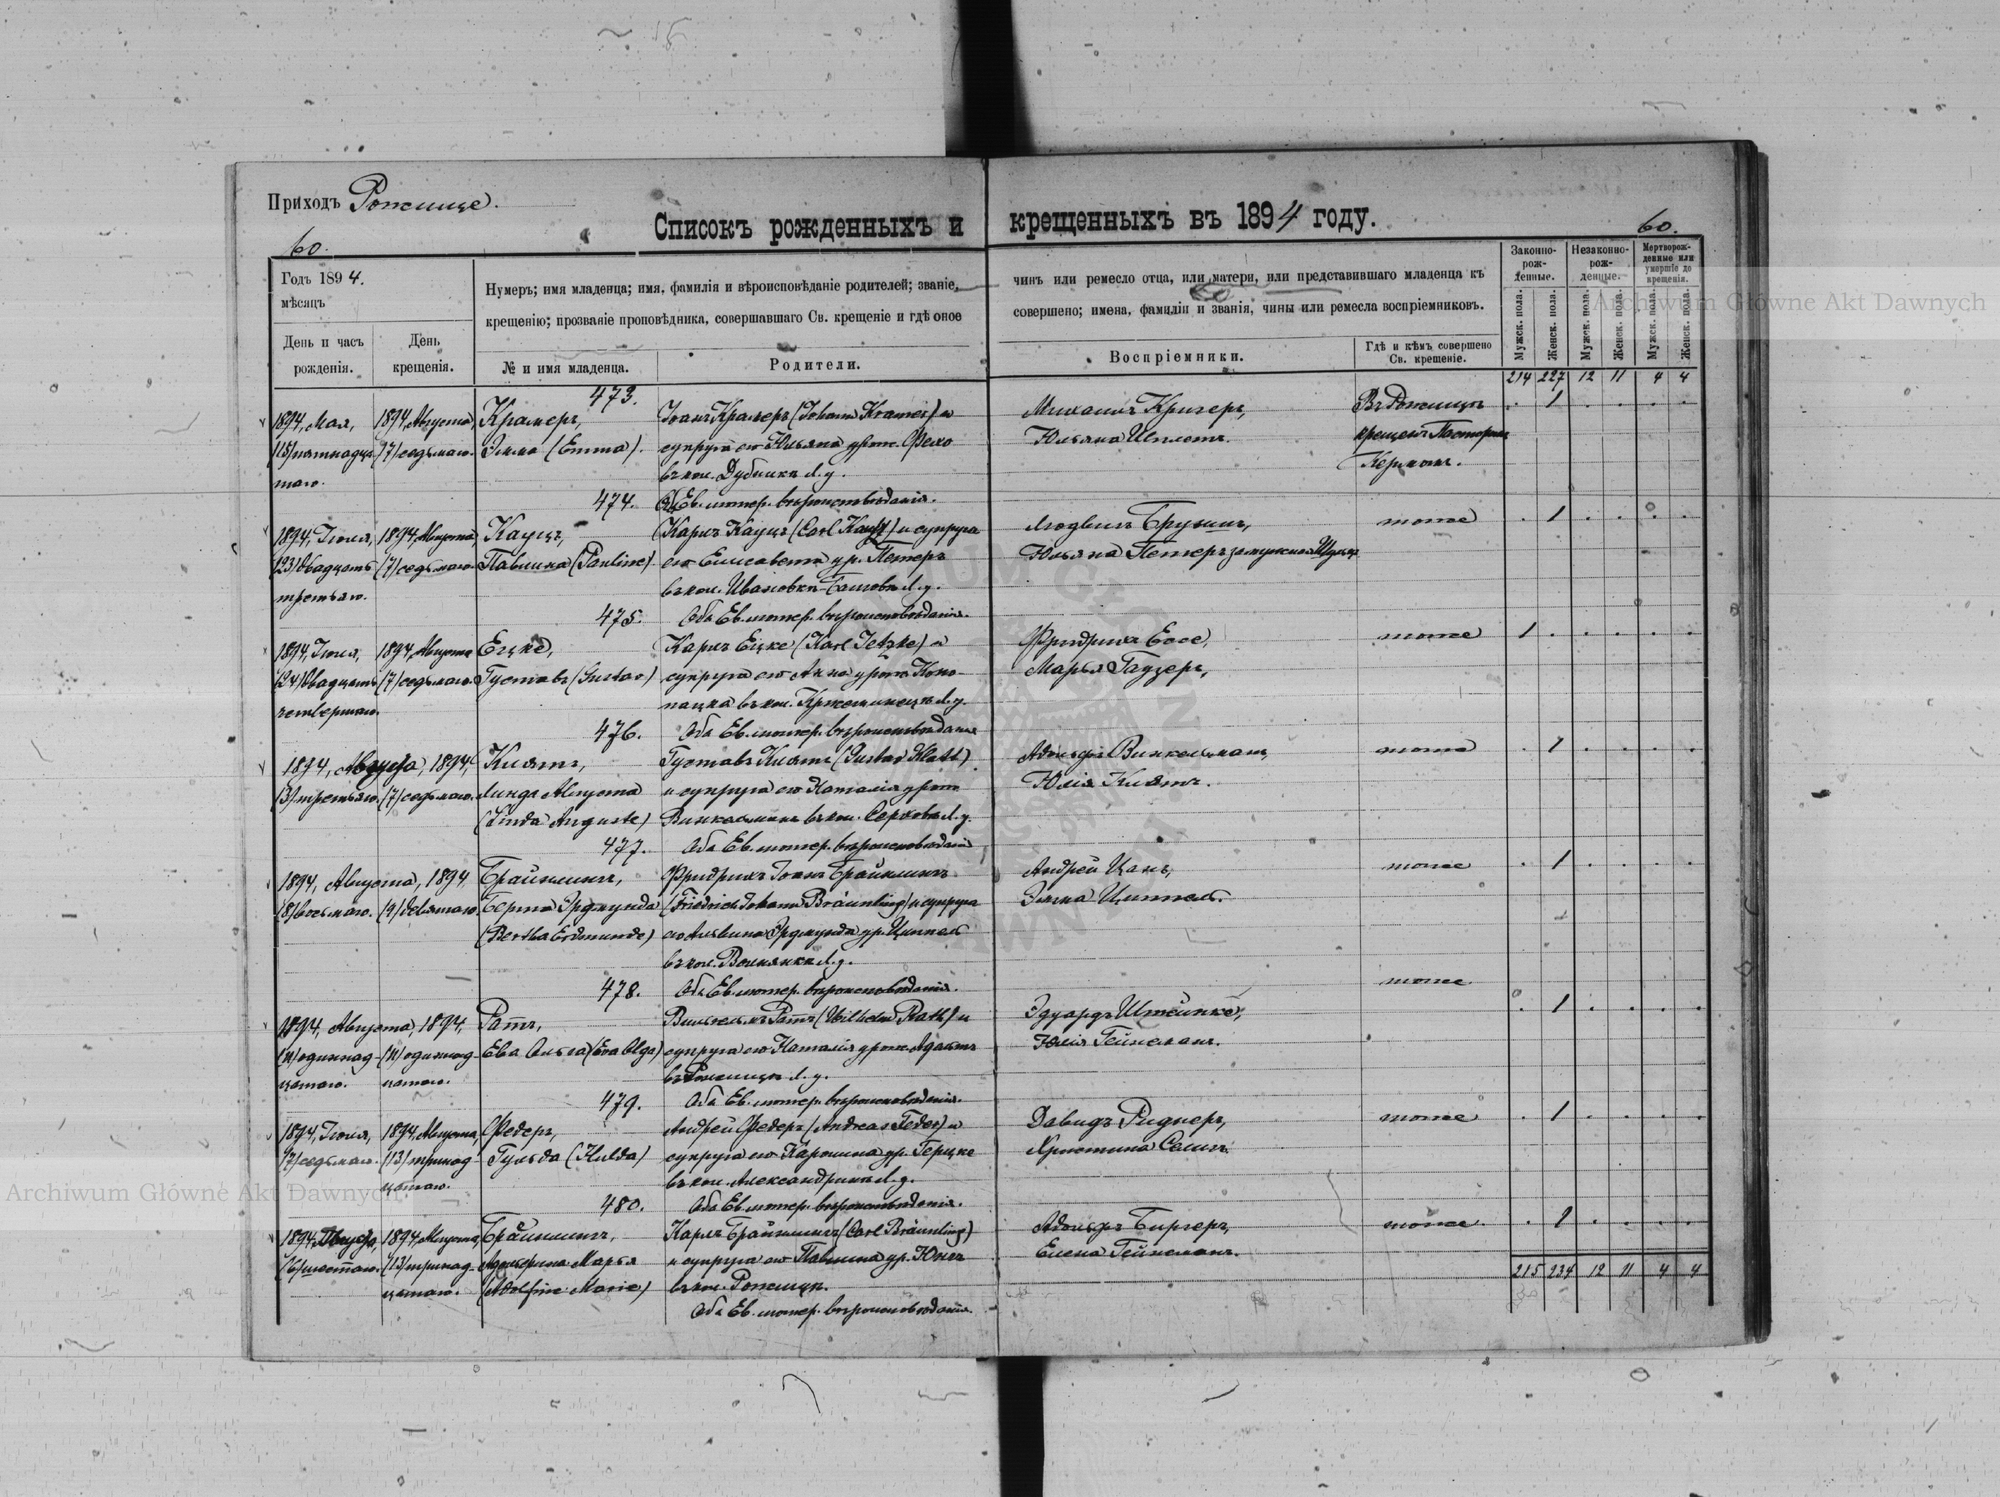 Приходъ Рожище.
Списокъ рожденныхъ и крещенныхъ въ 1894 году.
60.
60.
Годъ 1894.
мѣсяцъ
День и часъ
рожденія.
День
крещенія.
Нумеръ; имя младенца; имя, фамилія и вѣроисповѣданіе родителей; званіе,
чинъ или ремесло отца, или матери, или представившаго младенца къ
крещенію; прозваніе проповѣдника, совершавшаго Св. крещеніе и гдѣ оное
совершено; имена, фамиліи и званія, чины или ремесла воспріемниковъ.
№ и имя младенца.
Родители.
Воспріемники.
Гдѣ и кѣмъ совершено
Св. крещеніе.
Законно-
рож-
денные.
Незаконно-
рож-
денные.
Мертворож-
денные или
умершіе до
крещенія.
Мужск. пола.
Женск. пола.
Мужск. пола.
Женск. пола.
Мужск. пола.
Женск. пола.
214 227 12 11 4 4
473.
1894, Мая, 1894, Августа, Крамеръ, Іоаннъ Крамеръ (Johann Kramer) и Михаилъ Кригеръ, Въ Рожищѣ . 1 . . . .
(15) пятнадца- (7) седьмаго. Эмма (Emma). супруга его Юльяна урож. Юльяна крещенъ Пасторомъ
таго. въ кол. Дубники л.у. Керномъ.
474. Оба Ев. лютер. вѣроисповѣданія.
1894, Іюля, 1894, Августа, Кауцъ, Карлъ Кауцъ (Carl ) и супруга Людвигъ тоже . 1 . . . .
(23) двадцать (7) седьмаго. Павлина (Pauline). его Елисавета ур. Петеръ Юльяна Петеръ замужняя
третьяго. въ кол. л.у.
475. Оба Ев. лютер. вѣроисповѣданія.
1894, Іюля, 1894, Августа Ецке, Карлъ Ецке (Karl Jetzke) и Фридрихъ Ессе, тоже 1 . . . . .
(24) двадцать (7) седьмаго. Густавъ (Gustav) супруга его Анна урож. Коно- Марья Гаузеръ,
четвертаго. пацка въ кол. л.у.
476. Оба Ев. лютер. вѣроисповѣданія
1894, Августа, 1894, Клятъ, Густавъ Клятъ (Gustav Klatt) Адольфъ Винкельманъ, тоже . 1 . . . .
(3) третьяго. (7) седьмаго. Линда Августа и супруга его Наталія урож. Юлія Клятъ.
(Linda Auguste) Винкельманъ въ кол. л.у.
477. Оба Ев. лютер. вѣроисповѣданія
1894, Августа, 1894 Брайнлингъ, Фридрихъ Іоаннъ Брайнлингъ Андрей Цанъ, тоже . 1 . . . .
(8) восьмаго. (9) девятаго. Берта Эрдмунда (Friedrich Johann Bräunling) и супруга Эмма Циммель.
(Bertha Erdmunde) его Альвина Эрдмунда ур. Циммель
въ кол. Волнянка л.у.
478. Оба Ев. лютер. вѣроисповѣданія. тоже
1894, Августа, 1894, Ратъ, Вильгельмъ Ратъ (Wilhelm Rath) и Эдуардъ Штейнке, . 1 . . . .
(11) одиннад- (11) одиннад- Ева Ольга (Eva Olga) супруга его Наталія урож. Адамъ Юлія Гейнеманъ.
цатаго. цатаго. въ Рожищѣ л.у.
479. Оба Ев. лютер. вѣроисповѣданія.
1894, Іюля, 1894, Августа, Федеръ, Андрей Федеръ (Andreas Feder) и Давидъ Риднеръ, тоже . 1 . . . .
(7) седьмаго. (13) тринад- Гульда (Hulda) супруга его Каролина ур. Герцке Христина
цатаго. въ кол. Александрин л.у.
480. Оба Ев. лютер. вѣроисповѣданія.
1894, Августа, 1894, Августа, Брайнлингъ, Карлъ Брайнлингъ (Carl Bräunling) Адольфъ Биргеръ, тоже . 1 . . . .
(6) шестаго. (13) тринад- Адольфина Марья и супруга его Павлина ур. Елена Гейнеманъ.
цатаго. (Adolfine Marie) въ кол. Рожищѣ. 215 234 12 11 4 4
Оба Ев. лютер. вѣроисповѣданія.
Archiwum Główne Akt Dawnych
Archiwum Główne Akt Dawnych